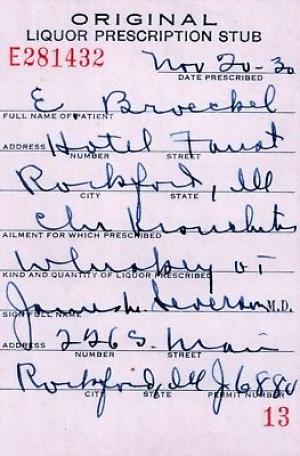 ORIGINAL
LIQUOR PRESCRIPTION STUB
E281432 Nov 20-30
DATE PRESCRIBED
E Broeckel
FULL NAME OF PATIENT
Hotel Faust
ADDRESS NUMBER STREET
Rockford, Ill
CITY STATE
Chr Bronchitis
AILMENT FOR WHICH PRESCRIBED
Whiskey
KIND AND QUANTITY OF LIQUOR PRESCRIBED
James M. Severson M.D.
SIGN FULL NAME
ADDRESS 226 S. Main
NUMBER STREET
Rockford, Ill
CITY STATE PERMIT NUMBER
13